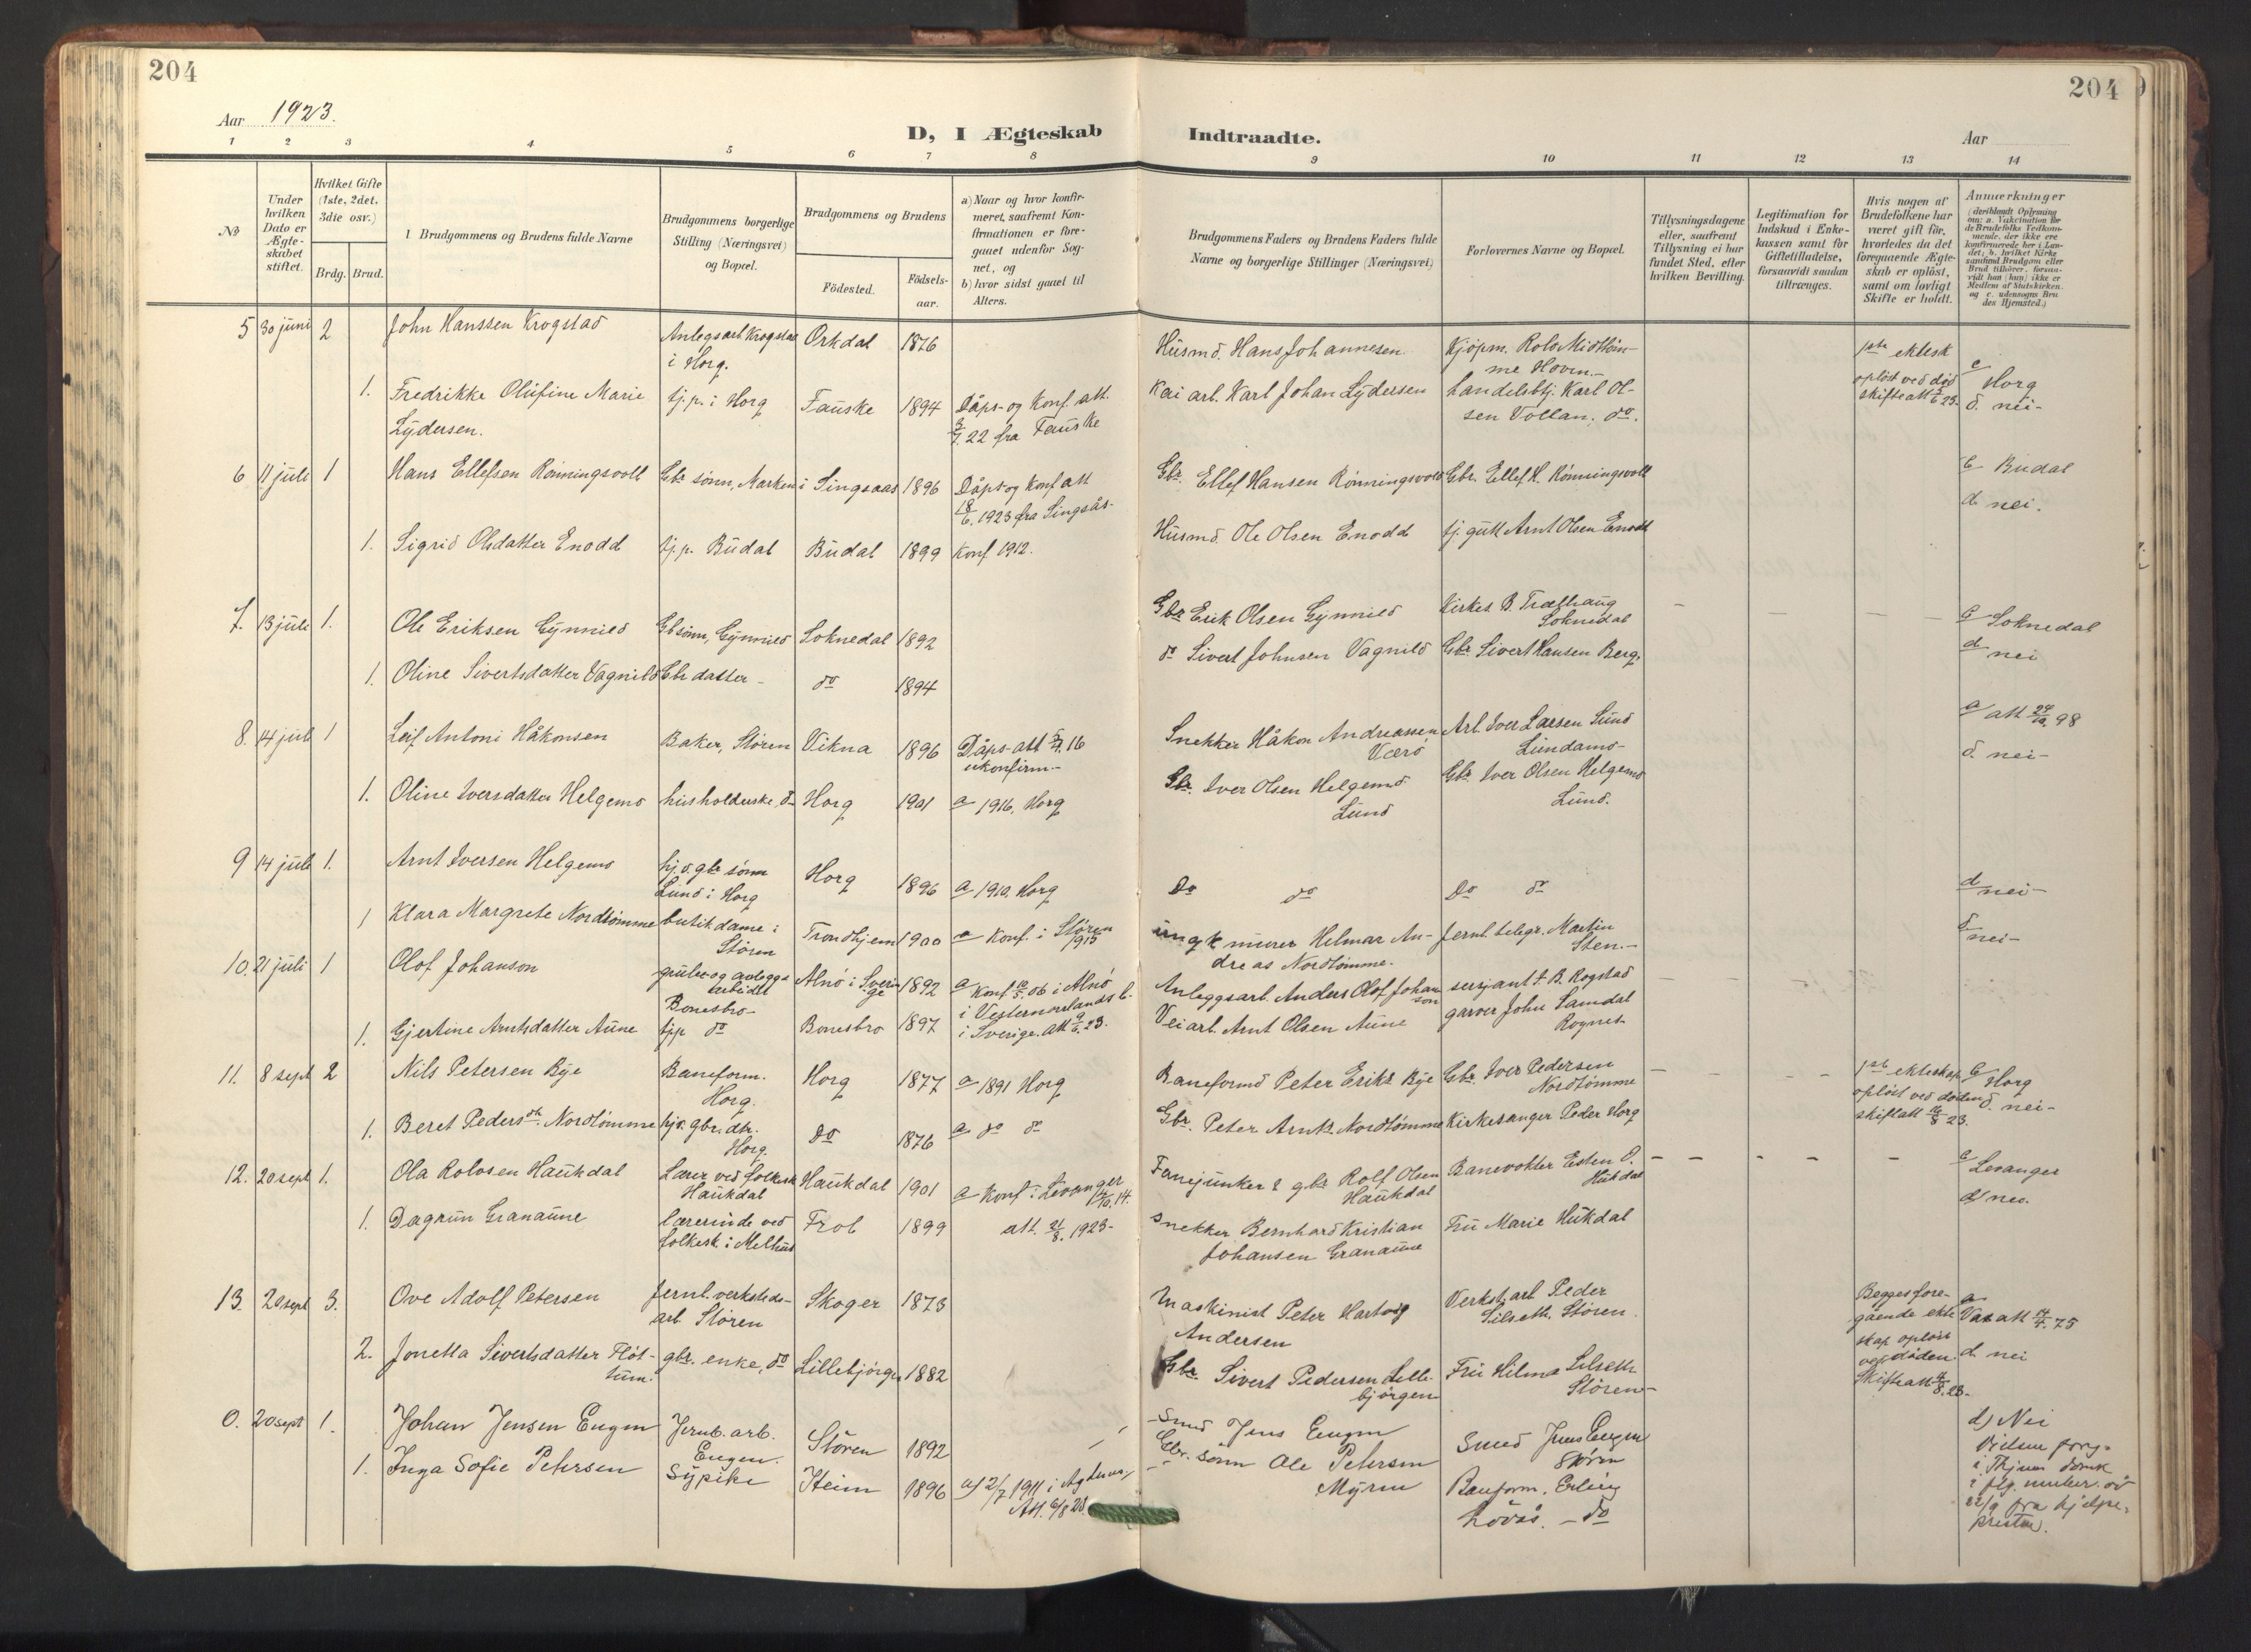 204
204
Aar 1923.
D, I Ægteskab Indtraadte.
Aar
1 2 3 4 5 6 7 8 9 10 11 12 13 14
No
Under hvilken Dato er Ægteskabet stiftet.
Hvilket Gifte (1ste, 2det, 3die osv.)
Brdg. Brud.
Brudgommens og Brudens fulde Navne
Brudgommens borgerlige Stilling (Næringsvei) og Bopæl.
Brudgommens og Brudens
Födested.
Födsels-aar.
a) Naar og hvor konfirmeret, saafremt Konfirmationen er foregaaet udenfor Sognet, og
b) hvor sidst gaaet til Alters.
Brudgommens Faders og Brudens Faders fulde Navne og borgerlige Stillinger (Næringsvei)
Forlovernes Navne og Bopæl.
Tillysningsdagene eller, saafremt Tillysning ei har fundet Sted, efter hvilken Bevilling.
Legitimation for Indskud i Enkekassen samt for Giftetilladelse, forsaavidt saadan tiltrænges.
Hvis nogen af Brudefolkene har været gift før, hvorledes da det foregaaende Ægteskab er oplöst, samt om lovligt Skifte er holdt.
Anmærkninger
(deriblandt Oplysning om: a. Vakcination for de Brudefolks Vedkommende, der ikke ere konfirmerede her i Landet; b. hvilket Kirkesamfund Brudgom eller Brud tilhörer, forsaavidt han (hun) ikke er Medlem af Statskirken, og c. udensogns Brudes Hjemsted.)
5 30 juni 2 John Hanssen Krogstad Anlegsarb. Krogstad i Horg. Orkdal 1876 Husmd. Hans Johannesen. Kjöpm. Rolv Midttömme Hovin.- 1ste ektesk oplöst ved död skifteatt 23. c Horg
1. Fredrikke Olufine Marie Lydersen. tj.p. i Horg Fauske 1894 Dåps- og Konf. att. 22 fra Fauske Kai arb. Karl Johan Lydersen handelsbtj. Karl Olsen Vollan, do. d. nei-
6 11 juli 1 Hans Ellefsen Rönningsvoll Gbr sönn, Marken i Singsaas 1896 Dåps og Konf att 18/6. 1923 fra Singsås- Gbr. Ellef Hansen Rönningsvold Gbr. Ellef H. Rönningsvoll Budal
1. Sigrid Olsdatter Enodd tj.p. Budal Budal 1899 Konf. 1912. Husmd. Ole Olsen Enodd tj. gutt Arnt Olsen Enodd d nei.
7. 13 juli 1. Ole Eriksen Gynnild Gbsönn, Gynnild Soknedal 1892 Gbr Erik Olsen Gynnild Kirkes. B. Træthaug Soknedal c Soknedal
1. Oline Sivertsdatter Vagnild Gbr datter - do 1894 do Sivert Johnsen Vagnild Gbr. Sivert Hansen Berg. d nei
8. 14 juli 1 Leif Antoni Håkonsen Baker, Stören Vikna 1896 Dåps-att 16 ukonfirm.- Snekker Håkon Andreassen Værö Arb. Iver Larsen Lund Lundamo- a att 98
1. Oline Iversdatter Helgemo husholderske, do Horg 1901 a 1916, Horg Gbr. Iver Olsen Helgemo Lund Gbr. Iver Olsen Helgemo Lund. d. nei-
9 14 juli 1. Arnt Iversen Helgemo hj.v. gbr sönn Lund i Horg Horg 1896 a 1910. Horg Do do Do do d nei-
1 Klara Margrete Nordtömme butikdame i Stören Trondhjem 1900 a Konf. i Stören 1915 ungk murer Helmar Andreas Nordtömme. Jernb. telegr. Martin Sten.- d nei-
10. 21 juli 1 Olof Johanson grube og anleggsarbeider Bonesbro- Alnö i Sverige 1892 a Konf 06 i Alnö i Vesternorlands l. i Sverige. att 23. Anleggsarb. Anders Olof Johanson sersjant B. Rogstad
1. Gjertine Arntsdatter Aune tjp do Bonesbro 1897 Veiarb. Arnt Olsen Aune garver John Samdal Rognes-
11. 8 sept 2 Nils Petersen Bye Baneform. Horg. Horg 1877 a 1891 Horg Baneformd Peter Eriks. Bye Gbr. Iver Pedersen Nordtömme 1ste ekteskap oplöst ved döden skifteatt 16/8 23. c Horg
1. Beret Pedersdtr. Nordtömme hjv. gbr. dtr. Horg. Do 1876 a do do Gbr. Peter Arnts. Nordtömme Kirkesanger Peder Horg d. nei-
12. 20 sept 1. Ola Rolvsen Haukdal Lærer ved folkesk Haukdal Haukdal 1901 a Konf i Levanger 14. Fanejunker & gbr Rolf Olsen Haukdal Banevokter Esten O. Hukdal c Levanger
1. Dagrun Granaune lærerinde ved folkesk. i Melhus Frol 1899 att. 21/8. 1923- Snekker Bernhard Kristian Johansen Granaune Fru Marie Hukdal d nei.
13. 20 sept 3. Ove Adolf Petersen Jernb. verksteds-arb. Stören Skoger 1873 Maskinist Peter Hartvig Andersen Verkst. arb. Peder Silseth, Stören. Begges foregående ekteskap oplöst ved döden. Skifteatt 8.23- a Vax att 75
2. Jonetta Sivertsdatter Flöttum. gbr. enke, do Lillebjörgen 1882 Gbr Sivert Pedersen Lillebjörgen Fru Hilma Silseth Stören- d nei
0. 20 sept 1. Johan Jensen Engen Jernb. arb. Engen. Stören 1892 Smed Jens Engen Smed Jens Engen Stören d) Nei
1. Inga Sofie Petersen Sypike Heim 1896 a) 2/7 1911 i Agdenes, Att. 6/8 23. Gbr. sönn Ole Petersen Myren Banform. Erling Lövås. - do Vielsen i flg. 22/9 fra hjelpepresten.